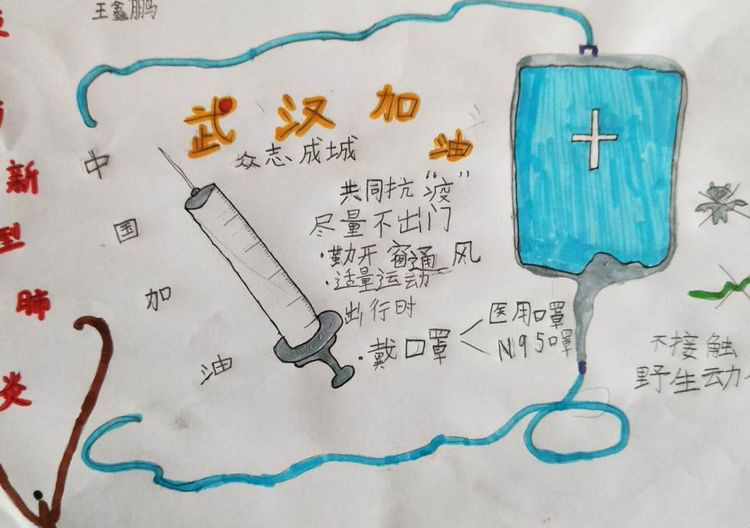 王鑫鹏
新型肺炎
武汉加油
众志成城
中国加油
共同抗“疫”
尽量不出门
·勤开窗通风
·适量运动
出行时
·戴口罩
医用口罩
N95口罩
不接触
野生动